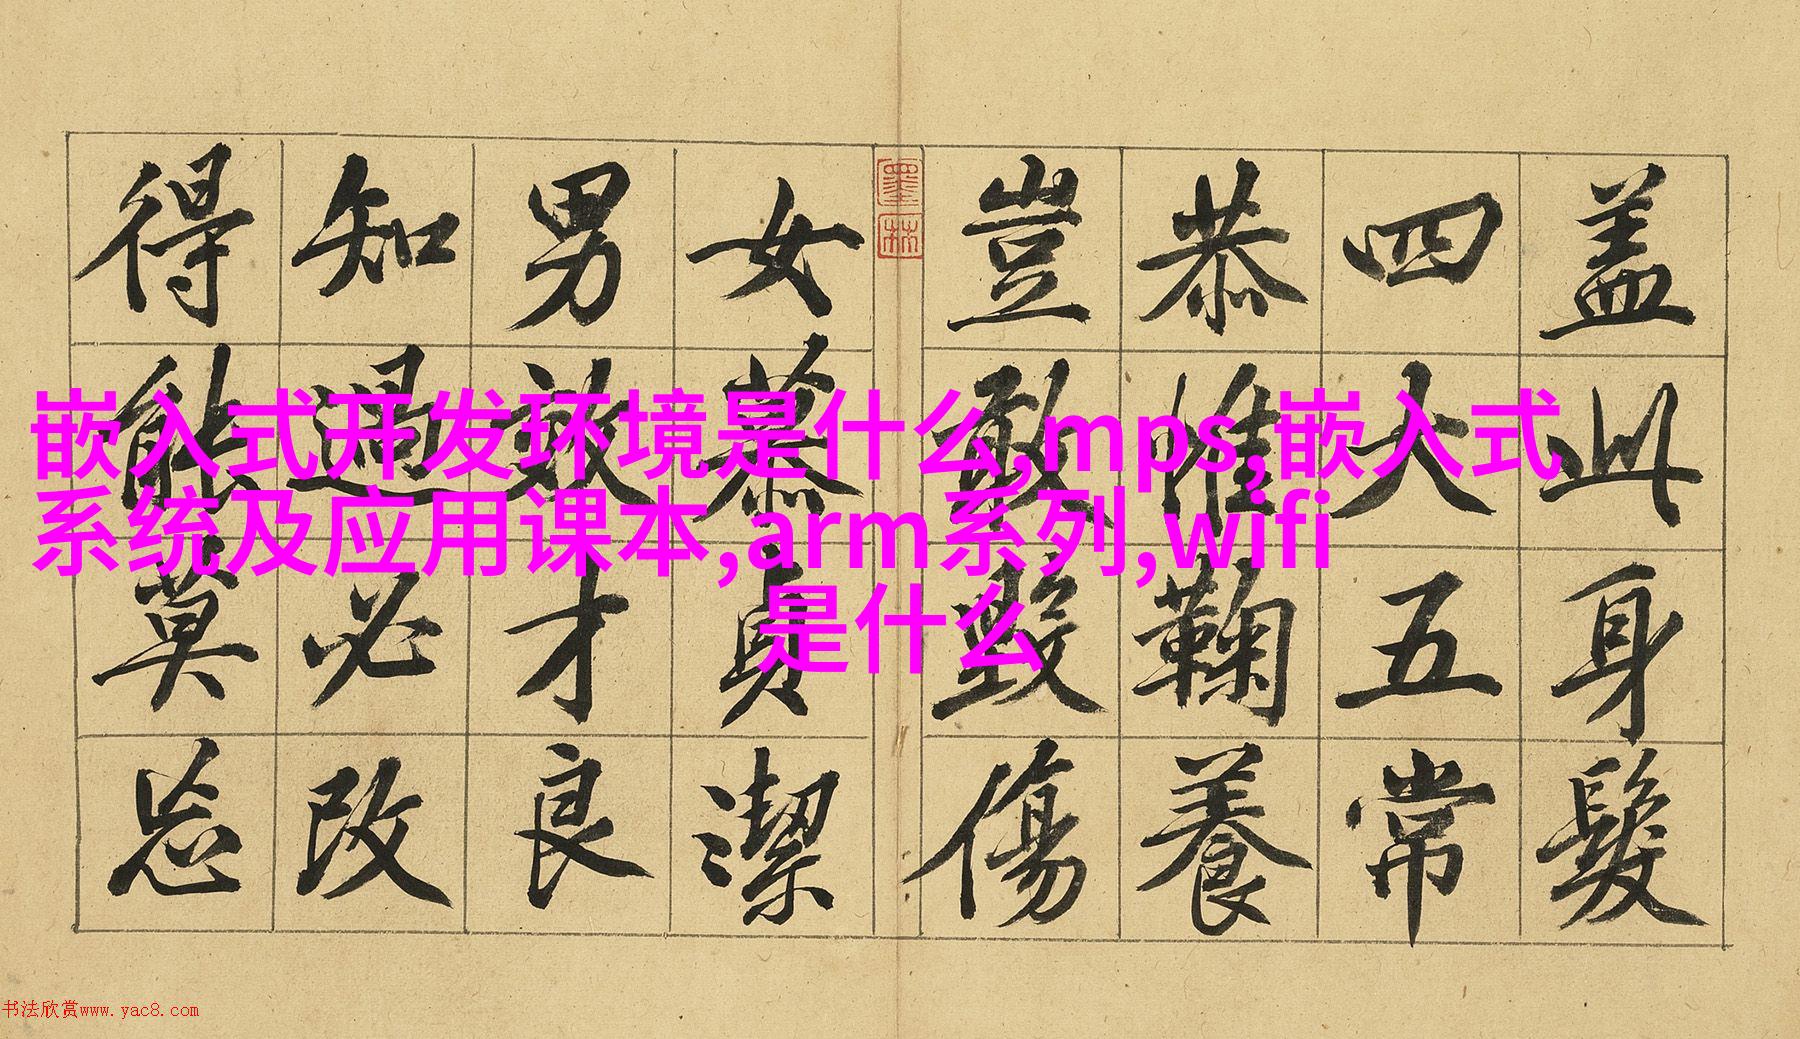 嵌入式开发环境是什么,mps,嵌入式
系统及应用课本,arm系列,wifi
是什么
盖此身髮
四大五常
恭惟鞠養
豈敢毀傷
女慕貞潔
男效才良
知過必改
得能莫忘
墨林
书法欣赏www.yac8.com